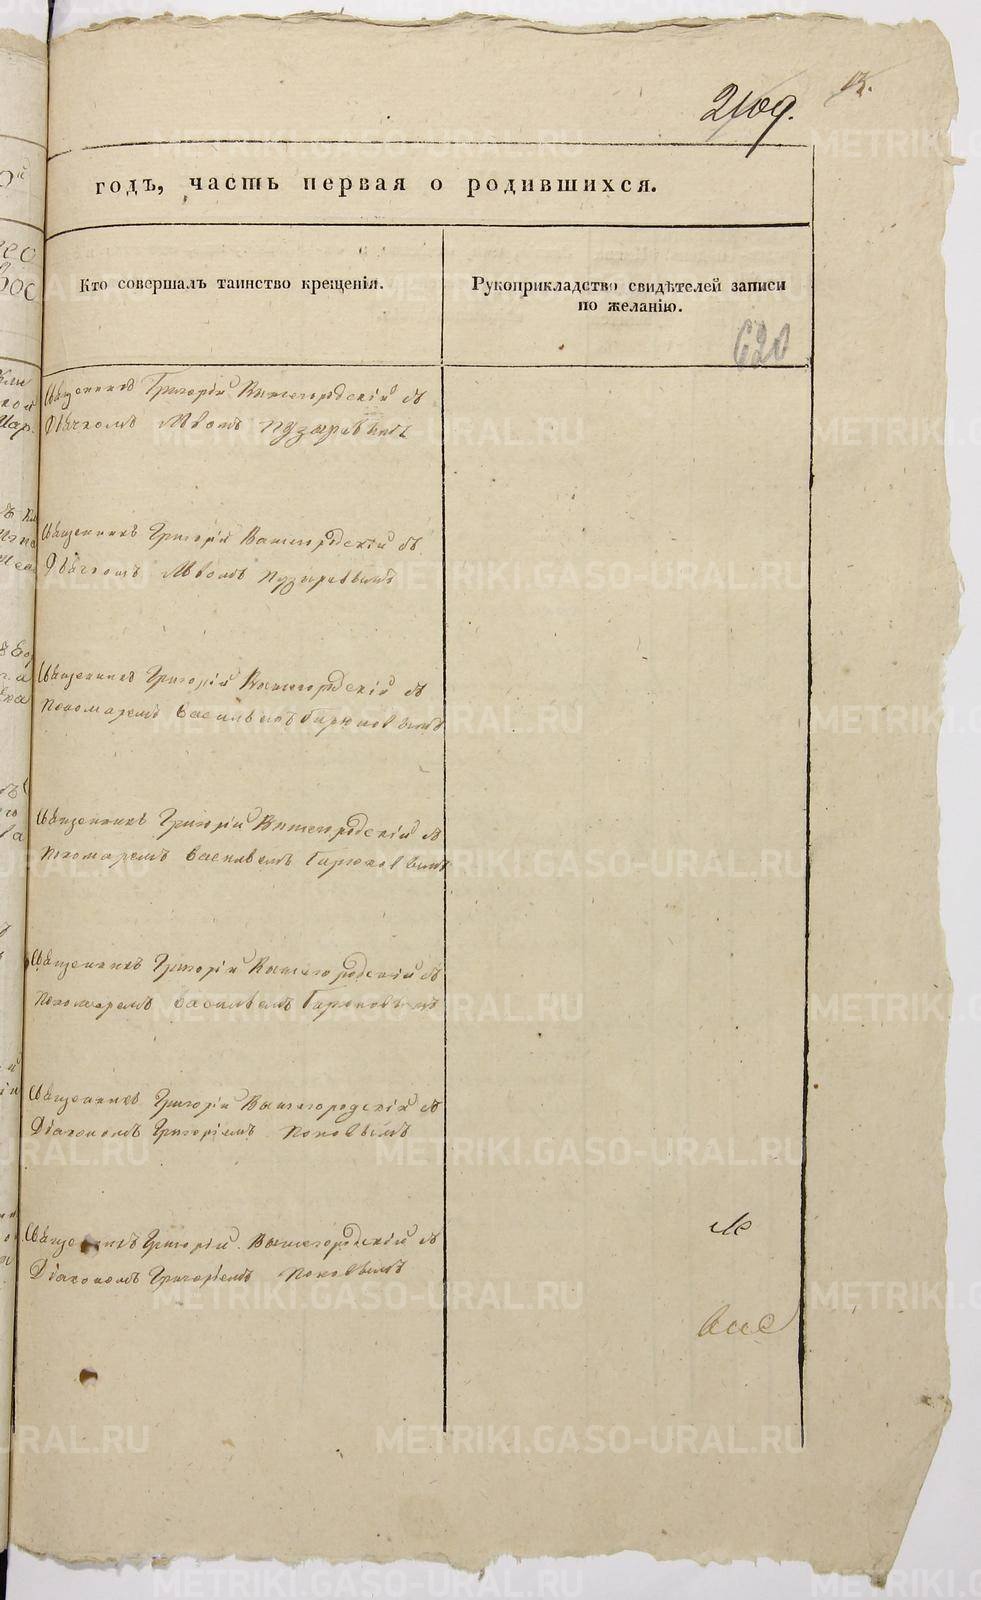 2109.
годъ, часть первая о родившихся.
Кто совершалъ таинство крещенія.
Рукоприкладство свидѣтелей записи
по желанію.
620
Священникъ Григорій Вышегородскій съ
Дьячкомъ Львомъ Пузыревымъ
Священникъ Григорій Вышегородскій съ
Дьячкомъ Львомъ Пузыревымъ
Священникъ Григорій Вышегородскій съ
Пономаремъ Васильемъ
Священникъ Григорій Вышегородскій съ
Пономаремъ Васильемъ
Священникъ Григорій Вышегородскій съ
Пономаремъ Васильемъ
Священникъ Григорій Вышегородскій съ
Діакономъ Григоріемъ Поповымъ
Священникъ Григорій Вышегородскій съ
Діакономъ Григоріемъ Поповымъ
METRIKI.GASO-URAL.RU